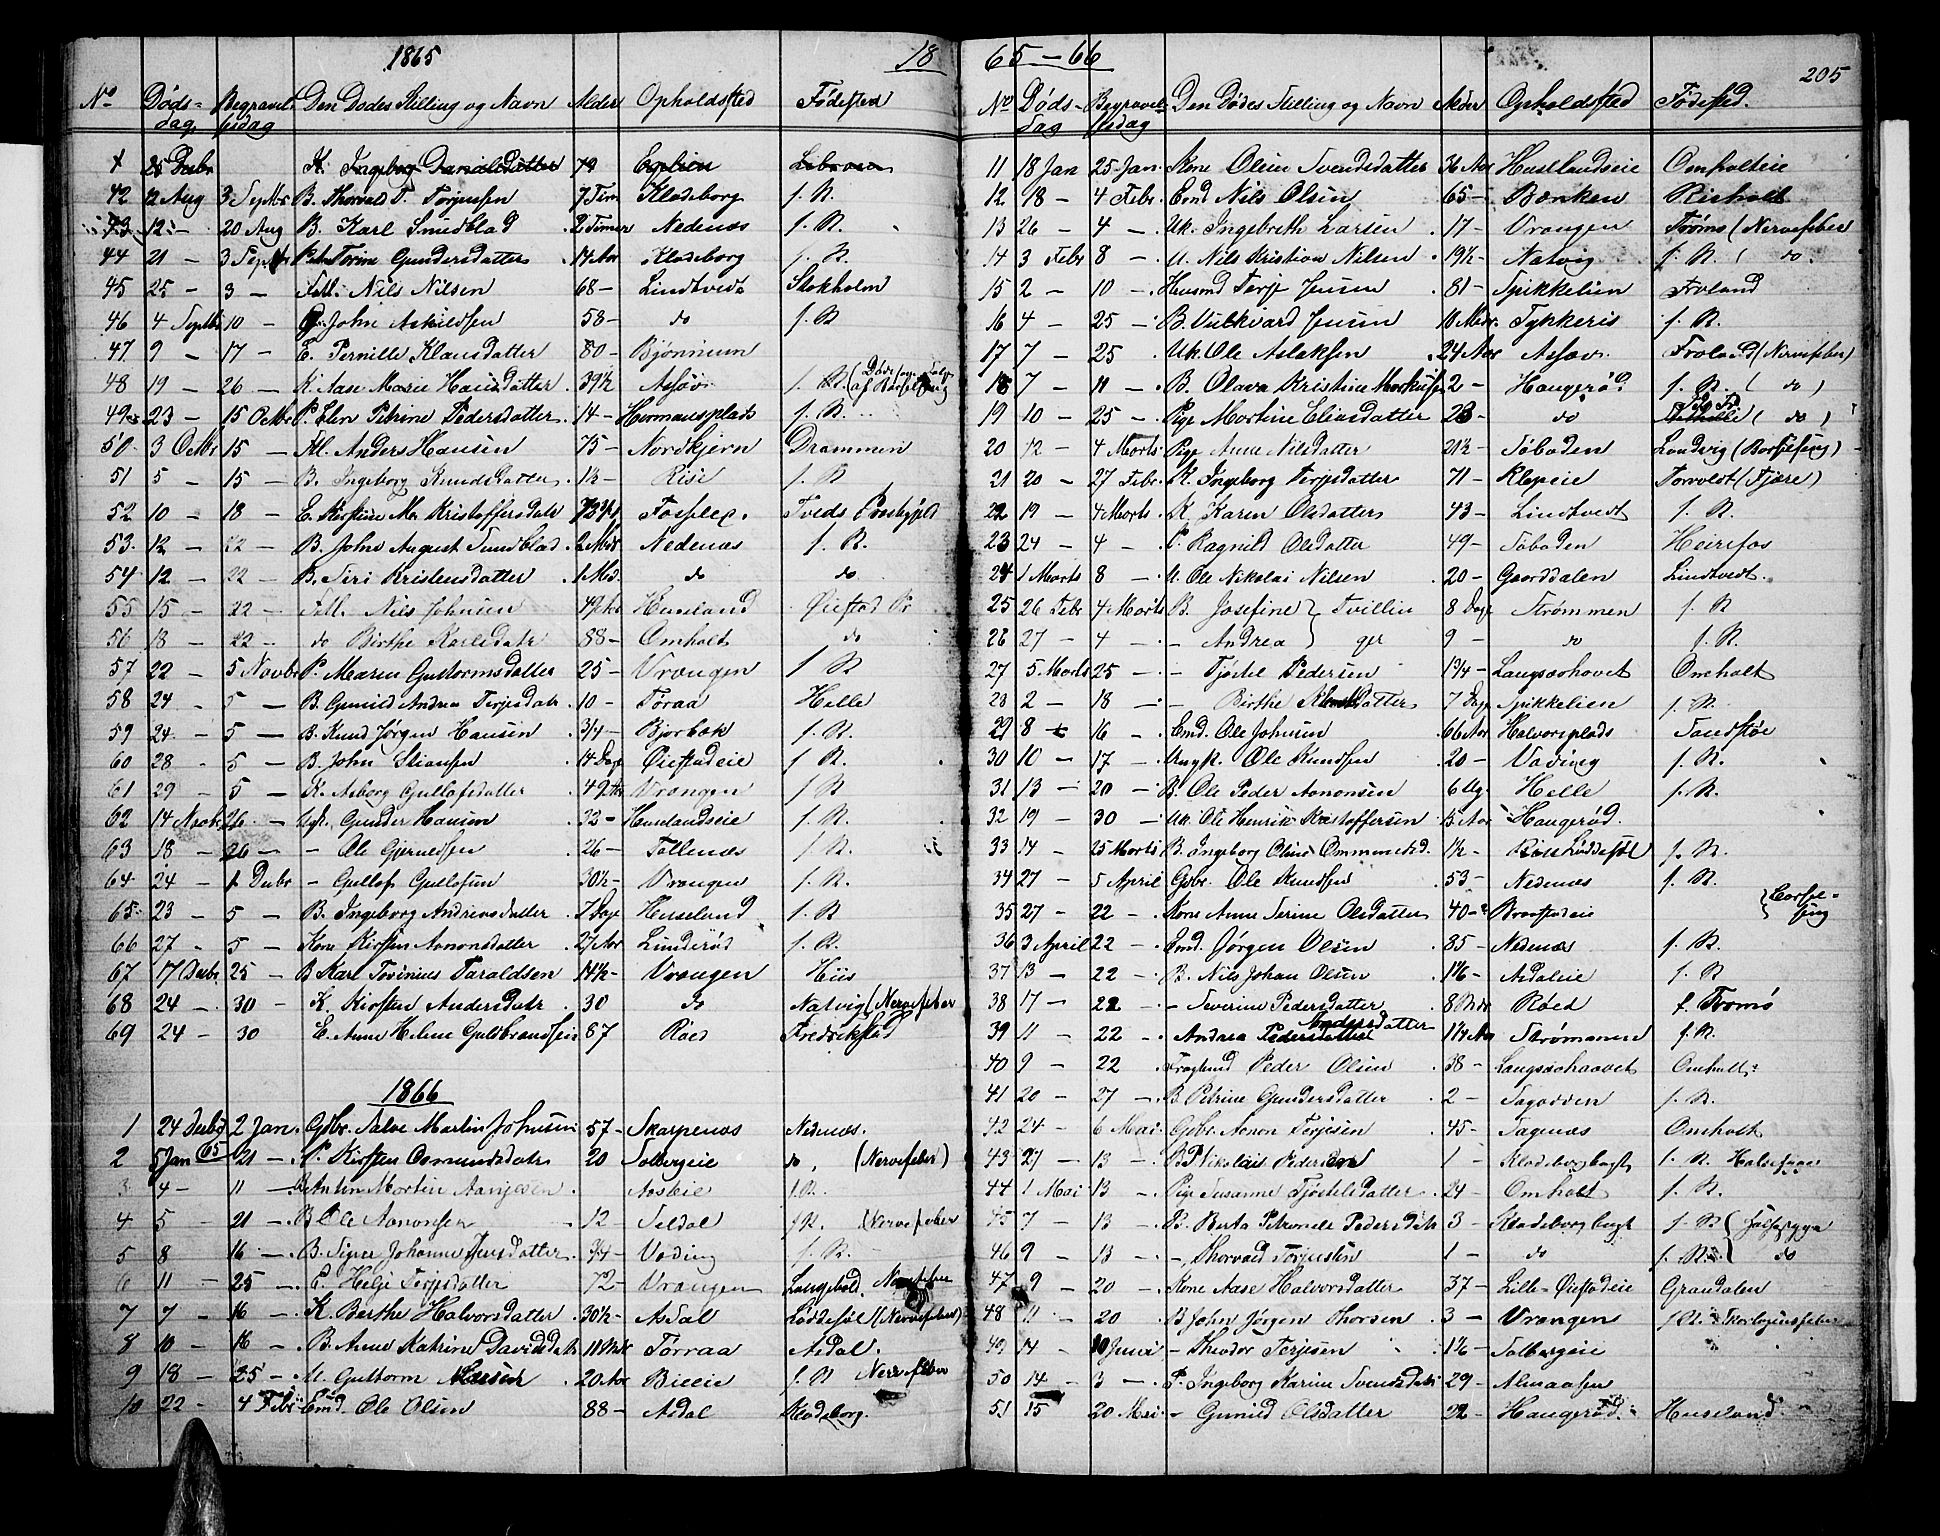 1865
No Døds- dag Begravel- sesdag Den Dødes Stilling og Navn Alder Opholdssted Fødested
25 Decbr K. Ingeborg Danielsdatter
42 2 Aug 3 Septbr B. Thorvald T. Torjussen 7 Tim Klodeborg f. R.
43 12 — 20 Aug B. Karl Sundblad 2 Timer Nedenæs f. R.
44 21 — 3 Septbr Torine Gundersdatter 14 Aar Klodeborg f. R.
45 25 — 3 — Fatt. Nils Nilsen 68 — Lindtvedt Stokholm
46 4 Septbr 10 — John Askildsen 58 — do f. R
47 9 — 17 — E. Pernille Klausdatter 80 — Bjønnum
48 19 — 26 — K. Aase Marie Hansdatter 39½ Assæv f. R. (Døde af Barselseng
49 23 — 15 Octbr P. Elen Petrine Pedersdatter 14 — Hermansplads f. R.
50 3 Octbr 15 Anders Hansen 75 — Nordkjern Drammen
51 5 — 15 — B. Ingeborg Knudsdatter 1½ — Rise f. R
52 10 — 18 — E. Kirstine M. Kristoffersdatr Fosplex. Tveds
53 12 — 22 — B. John August Sundblad 2 Mdr Nedenæs f. R.
54 12 — 22 — B. Siri Kristensdatter 1 Md. do do
55 15 — 22 — Fatt. Nils Johnsen Huseland Øiestad Pr
56 18 — 22 — do Birthe Karlsdatr 88 — Omholt do
57 22 — 5 Novbr P. Maren Guttormsdatter 25 — Vrangen f R
58 24 — 5 — B. Gunild Andrea Terjesdatr 10 — Toraa Helle
59 24 — 5 — B. Knud Jørgen Hansen 3/4 — Bjorbæk f. R.
60 28 — 5 — B. John Stiansen 14 Dage Øiestadeie f R.
61 29 — 5 — K. Asborg Gullofsdatter 49 Aar Vrangen f R
62 14 Novbr 26 — Gunder Hansen 32 — Huselandseie f. R.
63 18 — 26 — — Ole Gjeruldsen 26 — Tollenæs f. R.
64 24 — 1 Decbr — Gullof Gullofsen 30½ — Vrangen f. R.
65 23 — 5 — B. Ingeborg Andreasdatter 7 Dage Huseland f. R
66 27 — 5 — Kone Kirsten Aanonsdatter 27 Aar Linderød f. R.
67 17 Decbr 25 — B Karl Torinius Taraldsen 14½ — Vrangen Hiis
68 24 — 30 — K. Kirsten Andersdatr 30 do Natvig (Nervefeber
69 24 — 30 E. Anne Helene Guldbrandsen 87 Røed Fredrikstad
1866
1 24 Decbr 65 2 Jan. Gdbr. Salve Martin Johnsen 57 — Skarpenæs Nedenæs.
2 5 Jan 21 — P. Kirsten Osmundsdatr 20 Solbergeie do, (Nervefeber)
3 4 — 11 — B Anton Martin Aanjesen Aaskeie f. R.
4 5 — 21 — B Ole Aanonsen 12 — Seldal f. R. (Nervefeber
5 8 16 — B. Signe Johanne Jensdatter 3/4 — Vøding f. R.
6 11 — 25 — E. Helje Terjesdatter 72 — Vrangen Langebold. Nervefeber
7 7 — 16 — K. Berthe Halvorsdatter 30½ — Asdal Løddesøl (Nervefeber)
8 10 — 16 — B. Anne Katrine Davidsdatr 11 Mdr Torraa Asdal.
9 18 — 25 — U. Guttorm Hansen 20 Aar Bieie f. R Nervefeber
10 22 — 4 Febr Emd. Ole Olsen 88 — Asdal Klodeborg.
1865 — 66
205
No Døds- dag Begravel- sesdag Den Dødes Stilling og Navn Alder Opholdssted Fødested.
11 18 Jan 25 Jan. Kone Olive Svendsdatter 36 Aar Huselandseie Omholteie
12 18 — 4 Febr. Emd Nils Olsen 65 — Bænken Risholt
13 26 — 4 — Uk. Ingebreth Larsen 17 — Vrangen Tromø (Nervefeber
14 3 Febr 8 — U. Nils Kristian Nilsen 19½ — Natvig f. R. ( do.
15 2 — 10 — Husmd Terje Jensen 81 — Spikkelien Froland
16 4 — 25 — B. Vulkvard Jensen 10 Mdr. Tykkeris f. R.
17 7 — 25 Uk. Ole Aslaksen 24 Aar Assæv. Froland (Nervefeber)
18 7 — 11 — B. Olava Kristine Markusd 2 — Haugerød f. R. ( do )
19 10 — 25 — Pige Martine Eliasdatter 23 — do ( do )
20 12 — 4 Marts Pige Anne Nilsdatter 21½ — Søboden Landvig (Barselseng)
21 20 — 27 Febr. K. Ingeborg Terjesdatter 71 — Klopeie Torvedt (Fjære)
22 19 — 4 Marts K. Karen Olsdatter 43 — Lindtvedt f. R.
23 24 — 4 — P. Ragnild Olsdatter 49 — Søboden Heirefos
24 1 Marts 8 — U. Ole Nikolai Nilsen 20 — Gaarddalen Lindtvedt.
25 26 Febr 4 Marts B. Josefine } Tvillin 8 Dage Strømmen f. R
26 27 — 4 — — Andrea } ger 9 — do f. R.
27 5 Marts 25 — — Tjøstel Pedersen 1 3/4 — Langsæhovet Omholt
28 2 — 18 — — Birthe datter 7 Dage Spikkelien f. R.
29 8 — 16 — Emd. Ole Johnsen 66 Aar Halvorsplads Sandstøe
30 10 — 17 — Ungk. Ole Knudsen 20 — Vøving f. R.
31 13 — 20 — B. Ole Peder Aanonsen 6 Ug. Helle f. R.
32 19 — 30 — Uk. Ole Henrik Kristoffersen 15 Aar Haugerød.
33 14 — 25 Marts B. Ingeborg Oline Ommundsd. 1½ — Løddesøl f. R.
34 27 — 5 April Gdbr. Ole Knudsen 53 — Nedenæs f. R.
35 27 — 22 — Kone Anne Serine Olsdatter 40 — Braastadeie } Barsel- seng
36 3 April 22 — Emd. Jørgen Olsen 85 — Nedenæs f. R.
37 13 — 22 — B. Nils Johan Olsen 1 1/6 — Asdaleie f. R.
38 17 — 22 — — Severine Pedersdatter 8 Mdr Røed f. Tromø
39 11 — 22 — Andrea Pedersdatter Andersdatter 1¼ Aar Strømmen f. R.
40 9 — 22 Fraglund Peder Olsen 38 — Langsæhovet Omholt
41 20 — 27 — B Petrine Gundersdatter 2 — Sagodden f. R.
42 24 — 6 Mai. Gdbr. Aanon Terjesen 45 — Sagenæs Omholt
43 27 — 13 — B. Nikolai Pedersen 1 — Klodeborgbugt f. R. Halssyge
44 1 Mai 13 — Pige Susanne Tjøstelsdatter 24 — Omholt f. R.
45 7 — 13 — B. Berta Petronele Pedersdatr 3 — Klodeborgbugt f. R (Halssyge
46 9 — 13 — —, Thorvald Torjussen 1 — do f. R. do
47 9 — 20 — Kone Aase Halvorsdatter 37 — Lille-Øiestadeie Grandalen
48 11 — 20 — B John Jørgen Thorsen 3 — Vrangen f. R. Skarlagensfeber
49 14 — 10 Juni — Theodor Terjesen 1 1/6 — Solbergeie
50 14 — 3 — P. Ingeborg Karine Svendsdatr 29 — Almaasen
51 15 — 20 Mai. — Gunild Olsdatter 22 — Haugerød. Huseland.